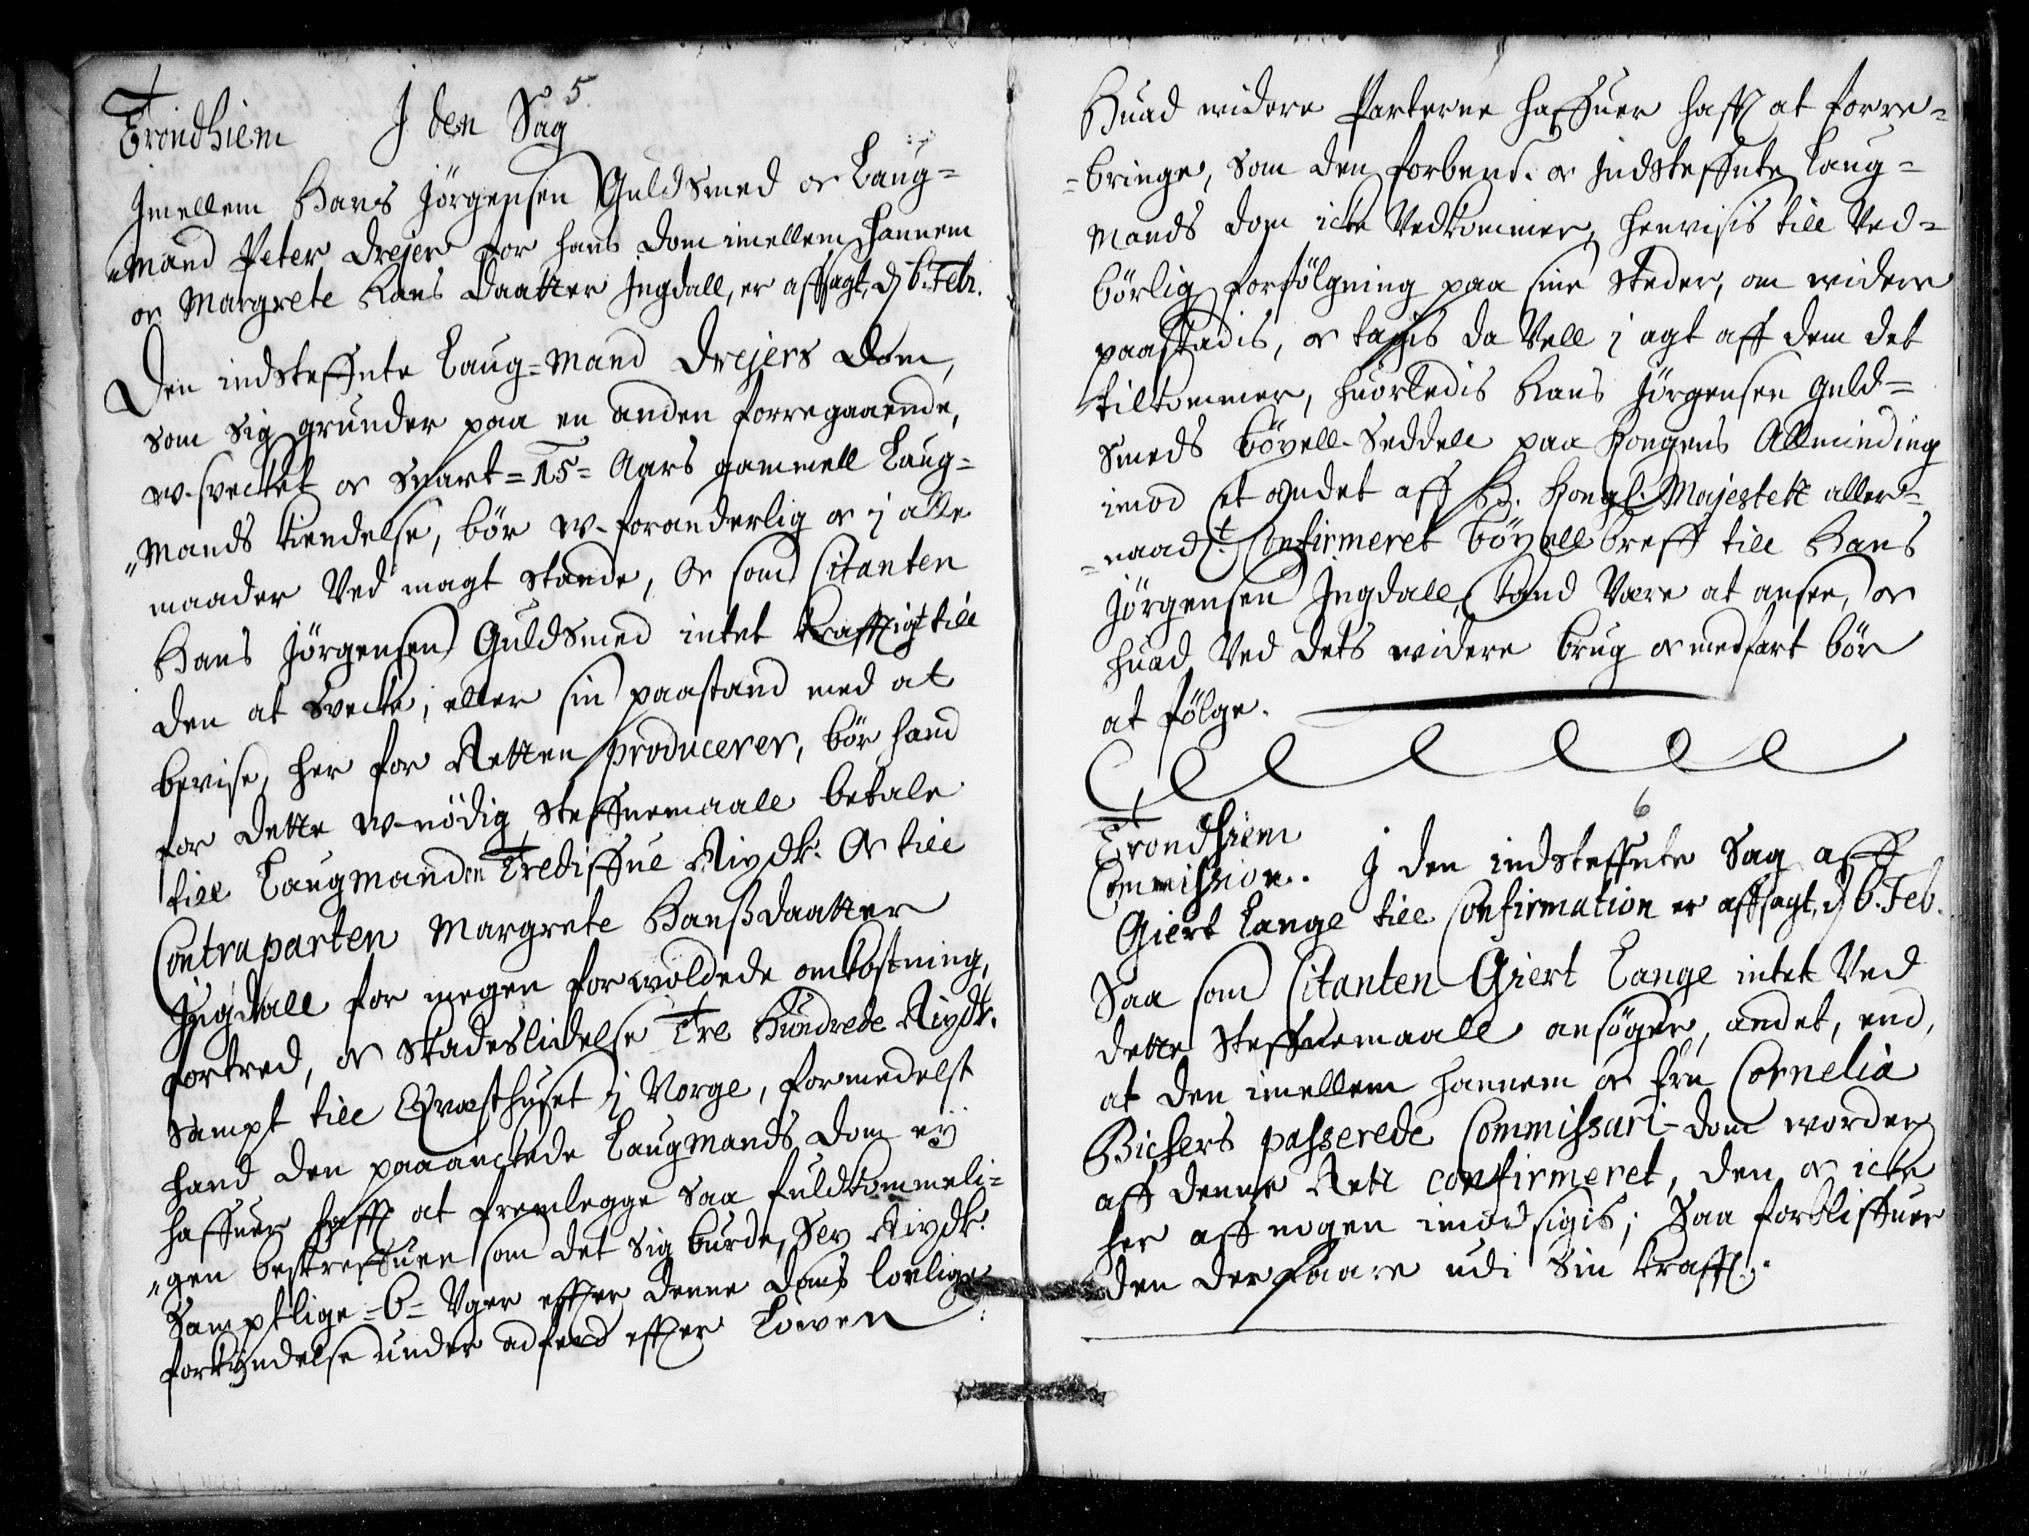 5.
Trondhiem J den Sag
Jmellem Hans Jörgensen Guldsmed oc Laug=
"mand Peter Drejer for hans Dom imellem hannem
oc Margrete Hans Daatter Jngdall, er affsagt, d. 6. Febr.
Den indsteffnte Laug=mand Drejers Dom,
som sig grunder paa en anden forregaaende,
w-svecket oc snart =15= Aars gammell Laug=
"mands kiendelse, bör w-foranderlig oc j alle
maader Ved magt stande, Oc som Citanten
Hans Jörgensen Guldsmed intet krafftigt till
den at svecke, eller sin paastand med at
bevise, her for Retten producerer, bör hand
for dette w-nödig steffnemaall betale
till Laugmanden Tredissue Rixdlr. Oc till
Contraparten Margrete Hanssdaatter
Jngdall for megen forwoldede omkostning,
fortred, oc skadeslidelse Tre Hundrede Rixdlr.
sampt till Qvæsthuset j Norge, formedelst
hand den paaanckede Laugmands Dom eÿ
haffuer hafft at fremlegge saa fuldkommeli=
"gen bestreffuen som det sig burde, Sex Rixdlr.
Samptlige =6= Uger effter denne Doms lovlige
forkÿndelse under adferd effter Lowen
Huad widere Parterne haffuer hafft at forre=
=bringe, som den forbend. oc indsteffnte Laug=
mands Dom icke Vedkommer, henvisis till Ved=
börlig forfölgning paa sine steder, om widere
paastadis, oc tagis da Vell j agt aff dem det
tilkommer, huorledis Hans Jörgensen Guld=
smeds böxell-seddell paa Kongens Allminding
imod et andet aff H. Kongl. Majestett aller=
=naadt. Confirmeret böxell breff till Hans
Jörgensen Jngdall, kand Være at ansee, oc
huad Ved dets widere brug oc medfart bör
at fölge.
6
Trondhiem
Commission. J den indsteffnte Sag aff
Giert Lange till Confirmation er affsagt, d. 6. Feb.
Saa som Citanten Giert Lange intet Ved
dette steffnemaall ansöger, andet, end,
at den imellem hannem oc frü Cornelia
Bichers passerede Commissari-dom worder
aff denne Rett confirmeret, den oc icke
her aff nogen imod sigis; Saa forbliffuer
den derfaare udi sin krafft.